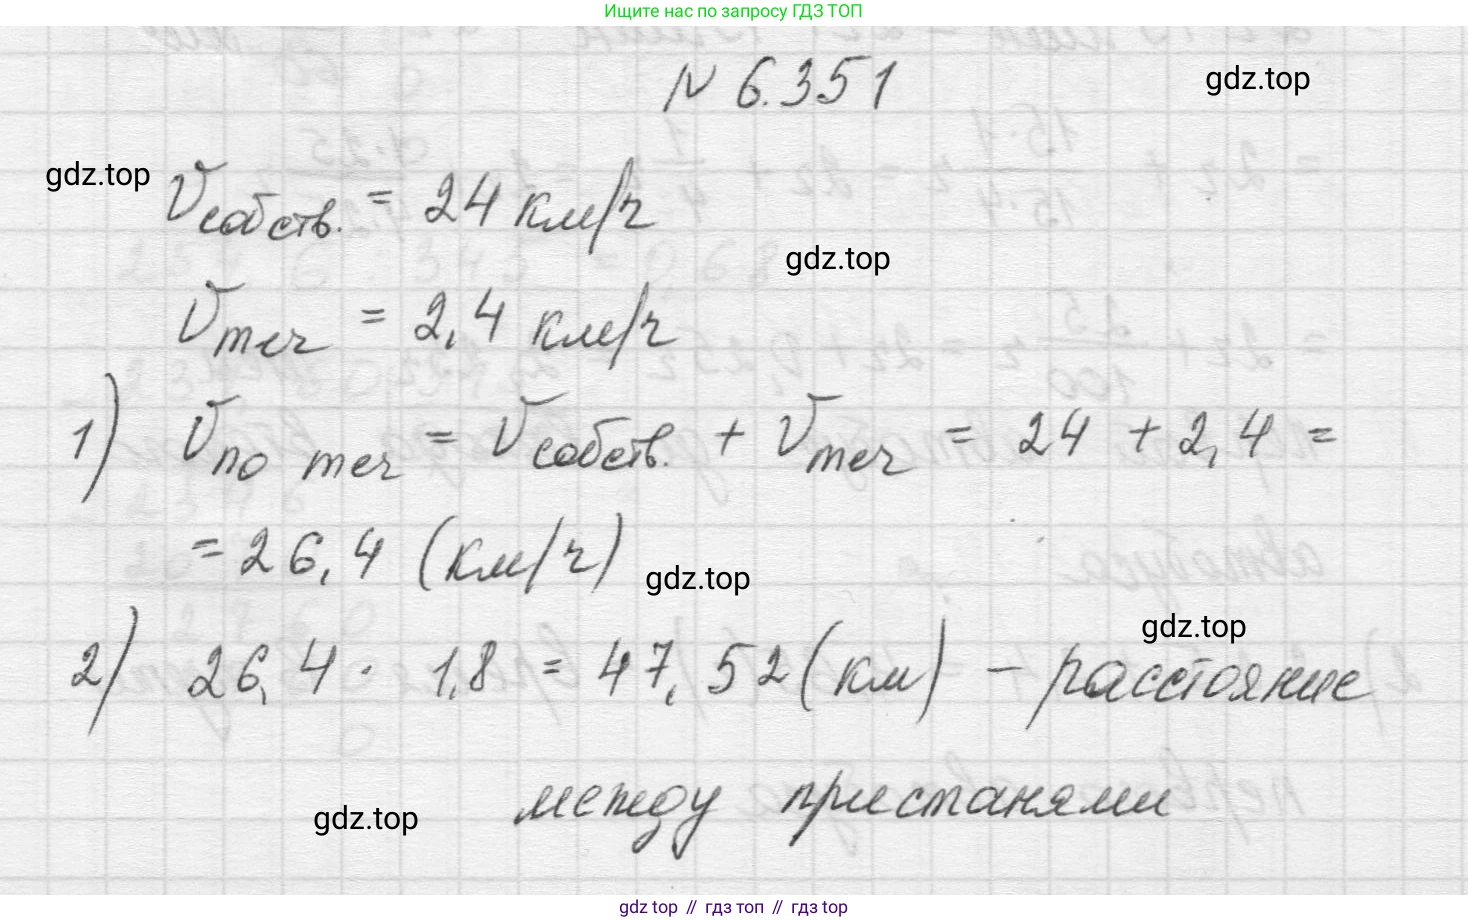 Ищите нас по запросу ГДЗ ТОП
N 6.351
gdz.top
gdz.top
Vсобств. = 24 км/ч
gdz.top
Vтеч = 2,4 км/ч
1) Vпо теч = Vсобств. + Vтеч = 24 + 2,4 =
= 26,4 (км/ч)
gdz.top
gdz.top
2) 26,4 · 1,8 = 47,52 (км) – расстояние
между пристанями
gdz.top
gdz top // гдз топ // гдз top